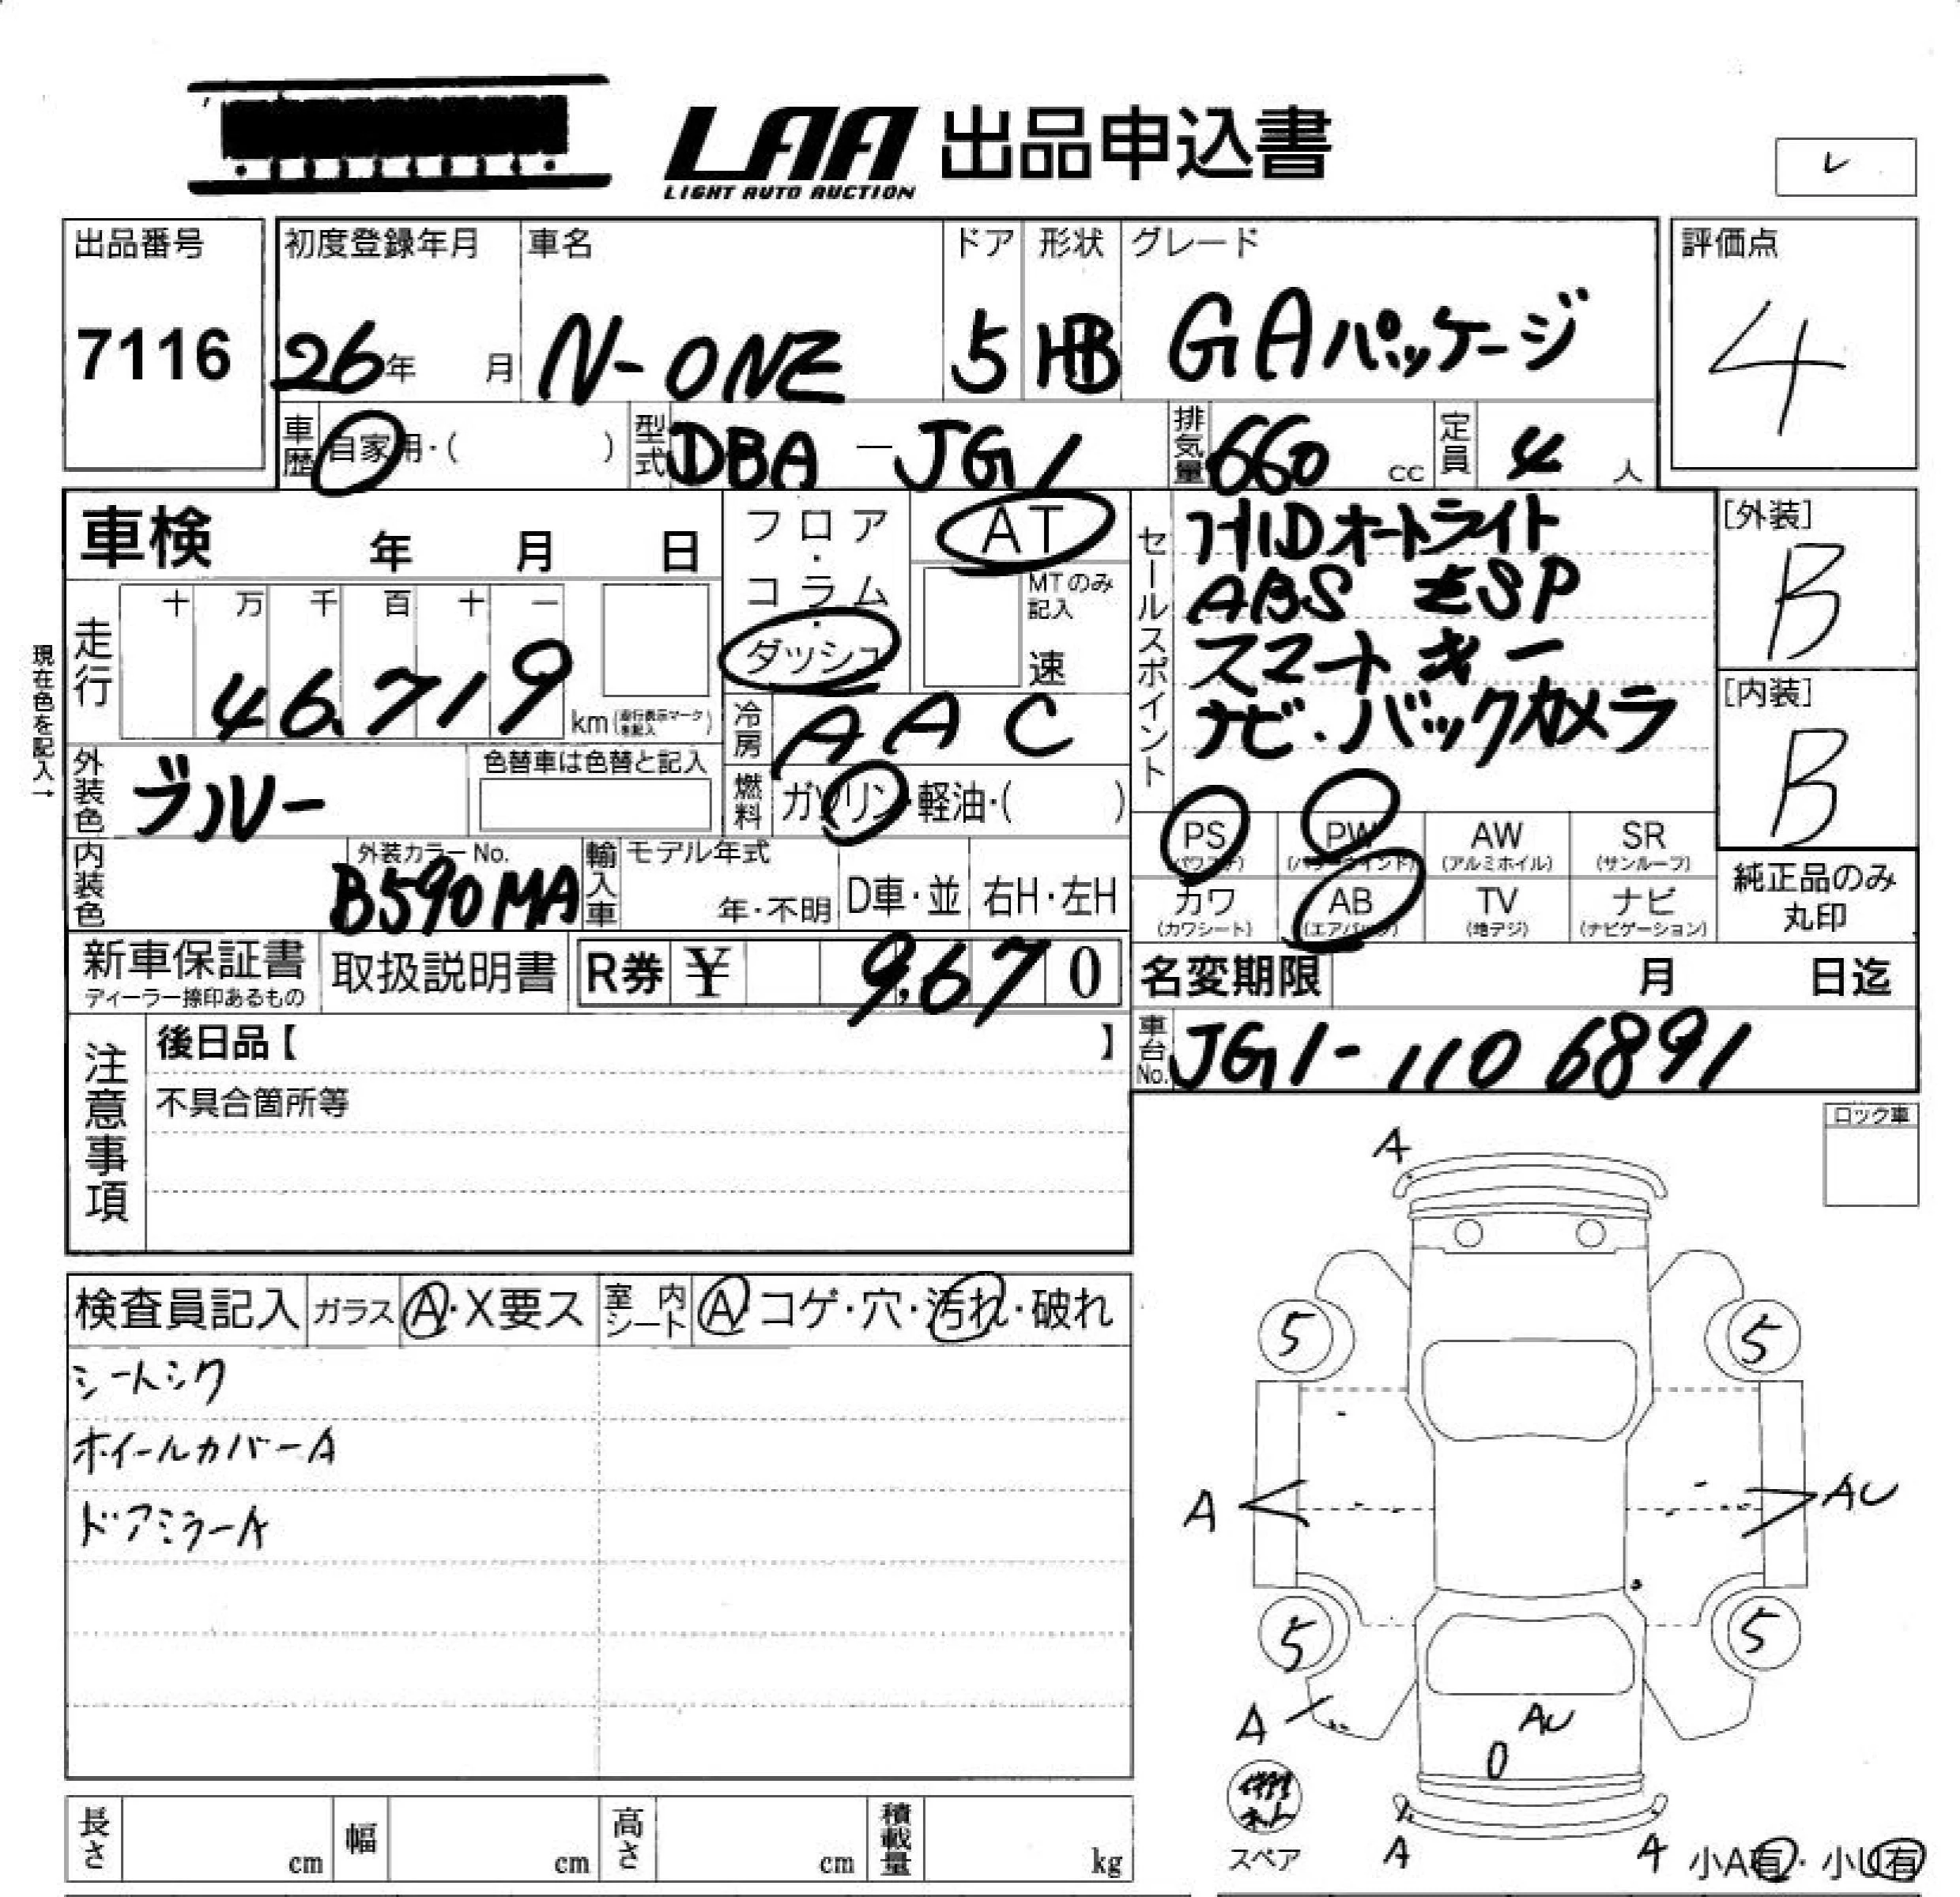 LAA 出品申込書
LIGHT AUTO AUCTION
レ
出品番号
7116
初度登録年月
26年 月
車名
N-ONE
ドア
5
形状
HB
グレード
G Aパッケージ
評価点
4
車歴 自家用・( )
型式 DBA-JG1
排気量 660 cc
定員 4 人
車検 年 月 日
フロア・コラム・ダッシュ
AT
MTのみ記入
速
セールスポイント
HIDオートライト
ABS ESP
スマートキー
ナビ・バックカメラ
[外装]
B
[内装]
B
現在色を記入→
走行 十 万 千 百 十 一
46,719 km (走行表示マークを記入)
冷房 AAC
外装色 ブルー
色替車は色替と記入
燃料 ガソリン・軽油・( )
PS (パワステ)
PW (パワーウインド)
AW (アルミホイル)
SR (サンルーフ)
カワ (カワシート)
AB (エアバッグ)
TV (地デジ)
ナビ (ナビゲーション)
純正品のみ丸印
内装色
外装カラーNo.
B590MA
輸入車 モデル年式
年・不明
D車・並
右H・左H
新車保証書
ディーラー捺印あるもの
取扱説明書
R券 ¥ 9,670
名変期限 月 日迄
車台No. JG1-1106891
注意事項
後日品【 】
不具合箇所等
ロック車
検査員記入
ガラス A・X要ス
室内シート A コゲ・穴・汚れ・破れ
シートシワ
ホイールカバーA
ドアミラーA
A
5 5
A AU
5 5
A AU
0
スペア
A A
小A有・小U有
長さ cm
幅 cm
高さ cm
積載量 kg